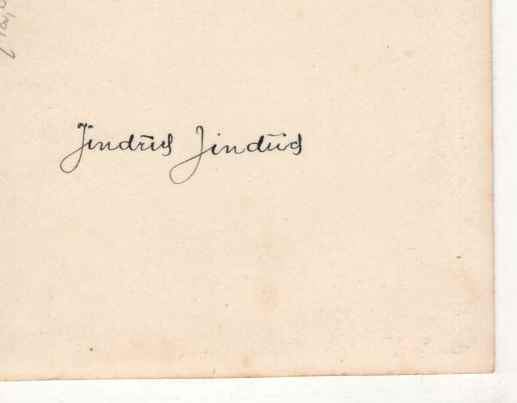 Jindřich Jindřich